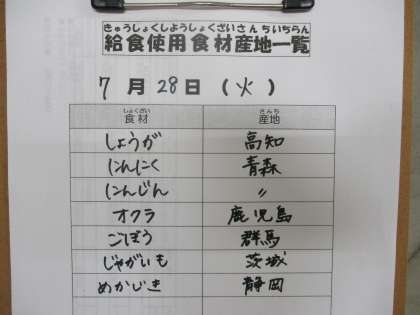 きゅうしょくしようしょくざいさんちいちらん
給食使用食材産地一覧
7月28日（火）
しょくざい さんち
食材 産地
しょうが 高知
にんにく 青森
にんじん 〃
オクラ 鹿児島
ごぼう 群馬
じゃがいも 茨城
めかじき 静岡